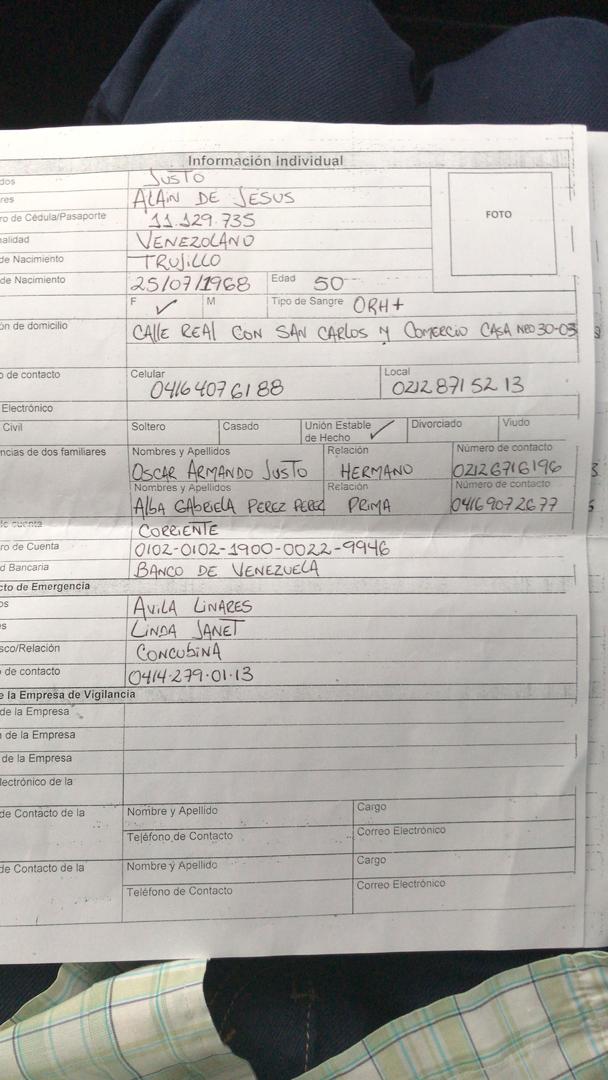 Información individual
dos JUSTO
res ALAIN DE JESUS
ro de Cédula/Pasaporte 11.129.735
FOTO
nalidad VENEZOLANO
de Nacimiento TRUJILLO
de Nacimiento 25/07/1968 Edad 50
F ✓ M Tipo de Sangre ORH+
ón de domicilio CALLE REAL CON SAN CARLOS Y COMERCIO CASA NRO 30-03
o de contacto Celular Local
0416 407 61 88 0212 871 52 13
Electrónico
Civil Soltero Casado Unión Estable de Hecho ✓ Divorciado Viudo
ncias de dos familiares Nombres y Apellidos Relación Número de contacto
OSCAR ARMANDO JUSTO HERMANO 02126716196
Nombres y Apellidos Relación Número de contacto
ALBA GABRIELA PEREZ PEREZ PRIMA 04169072677
de cuenta CORRIENTE
ro de Cuenta 0102-0102-1900-0022-9946
d Bancaria BANCO DE VENEZUELA
cto de Emergencia
os AVILA LINARES
s LINDA JANET
sco/Relación CONCUBINA
de contacto 0414-279-01-13
e la Empresa de Vigilancia
de la Empresa
de la Empresa
de la Empresa
lectrónico de la
de Contacto de la Nombre y Apellido Cargo
Teléfono de Contacto Correo Electrónico
de Contacto de la Nombre y Apellido Cargo
Teléfono de Contacto Correo Electrónico